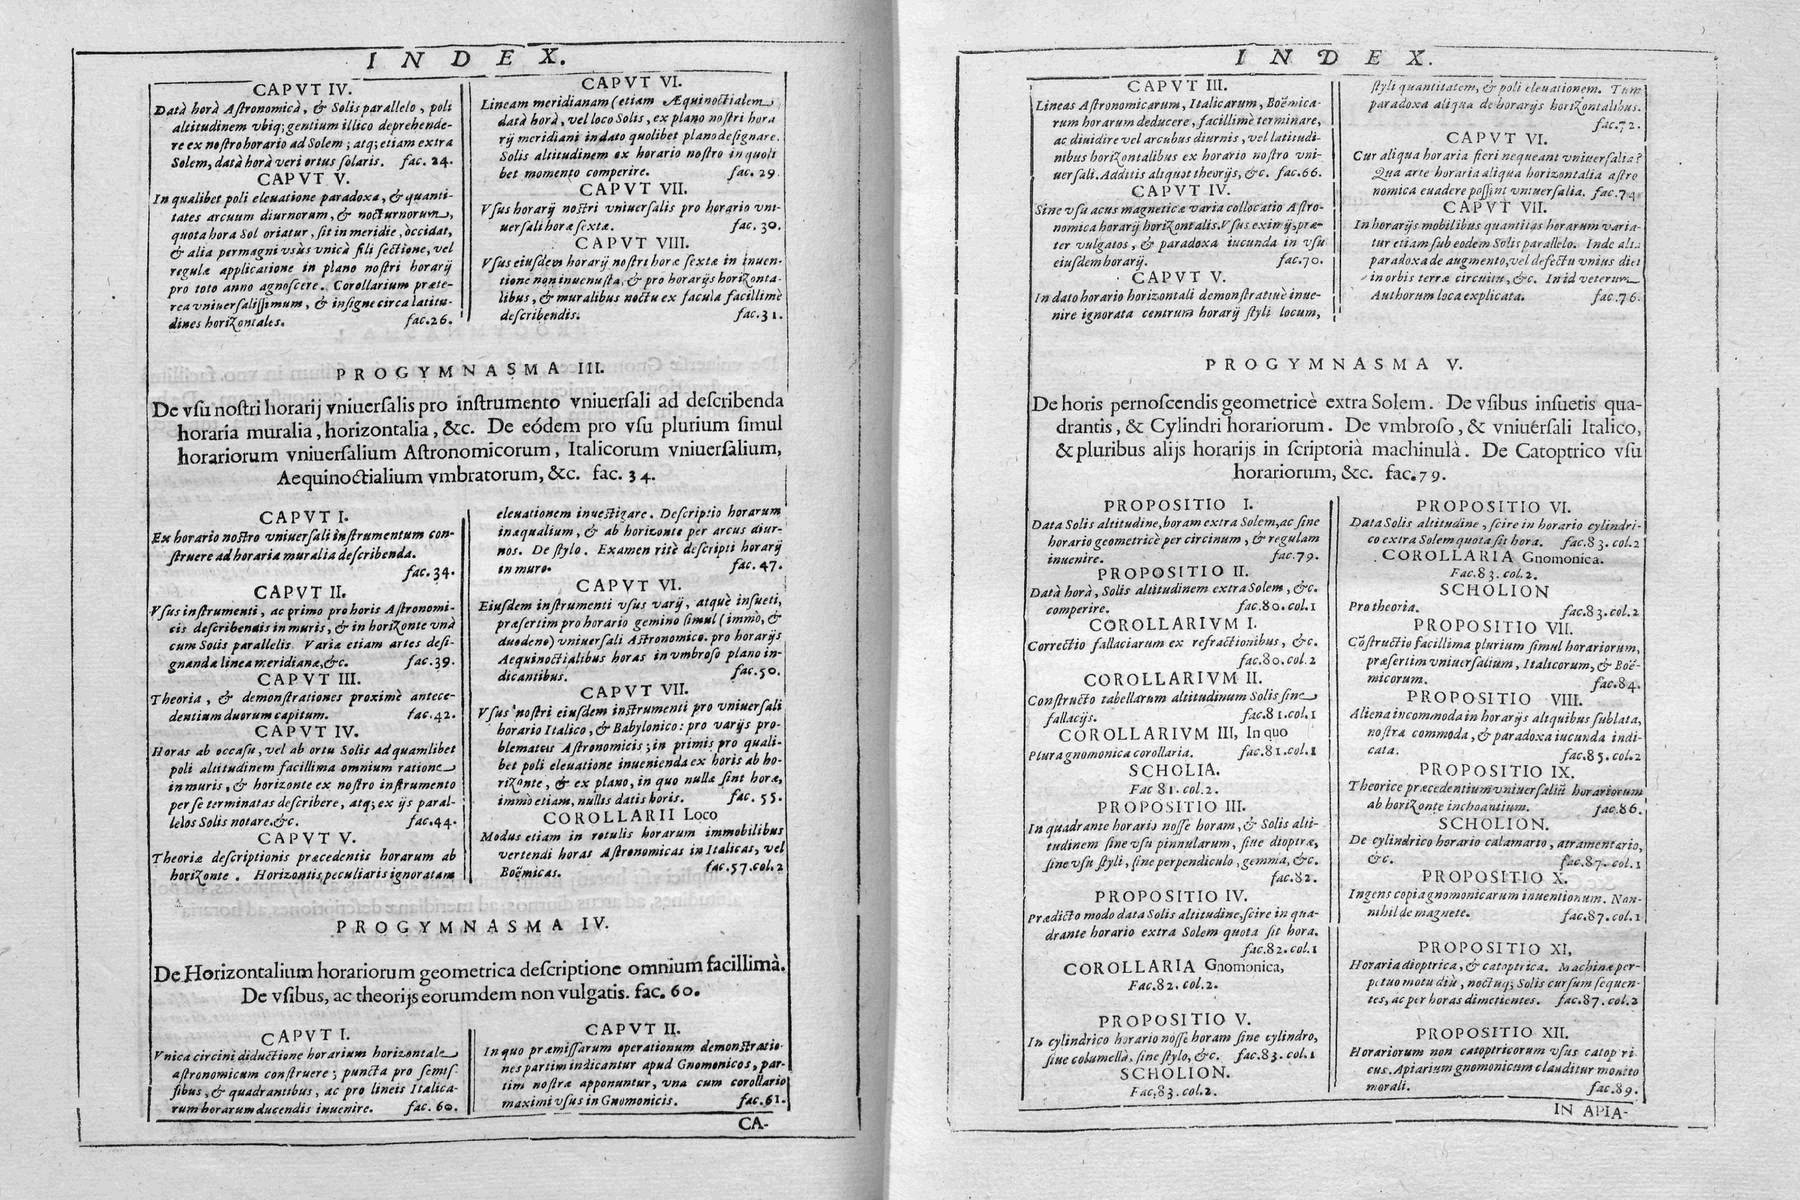 INDEX.
CAPVT IV.
Datâ horâ Astronomicâ, & Solis parallelo, poli
altitudinem vbiq; gentium illico deprehende-
re ex nostro horario ad Solem; atq; etiam extra
Solem, datâ horâ veri ortus solaris. fac. 24.
CAPVT V.
In qualibet poli eleuatione paradoxa, & quanti-
tates arcuum diurnorum, & nocturnorum,
quota hora Sol oriatur, sit in meridie, occidat,
& alia permagni vsùs vnicâ fili sectione, vel
regulæ applicatione in plano nostri horarij
pro toto anno agnoscere. Corollarium præte-
rea vniuersalissimum, & insigne circa latitu-
dines horizontales. fac.26.
CAPVT VI.
Lineam meridianam (etiam Æquinoctialem
datâ horâ, vel loco Solis, ex plano nostri hora
rij meridiani in dato quolibet plano designare.
Solis altitudinem ex horario nostro in quoli
bet momento comperire. fac. 29
CAPVT VII.
Vsus horarij nostri vniuersalis pro horario vni-
uersali horæ sextæ. fac. 30.
CAPVT VIII.
Vsus eiusdem horarij nostri horæ sextæ in inuen-
tione non inuenusta, & pro horarijs horizonta-
libus, & muralibus noctu ex facula facillimè
describendis. fac.31.
PROGYMNASMA III.
De vsu nostri horarij vniuersalis pro instrumento vniuersali ad describenda
horaria muralia, horizontalia, &c. De eódem pro vsu plurium simul
horariorum vniuersalium Astronomicorum, Italicorum vniuersalium,
Aequinoctialium vmbratorum, &c. fac. 34.
CAPVT I.
Ex horario nostro vniuersali instrumentum con-
struere ad horaria muralia describenda.
fac.34.
CAPVT II.
Vsus instrumenti, ac primo pro horis Astronomi-
cis describendis in muris, & in horizonte vnà
cum Solis parallelis. Varia etiam artes desi-
gnandæ lineæ meridianæ, &c. fac.39.
CAPVT III.
Theoria, & demonstrationes proximè antece-
dentium duorum capitum. fac.42.
CAPVT IV.
Horas ab occasu, vel ab ortu Solis ad quamlibet
poli altitudinem facillima omnium ratione
in muris, & horizonte ex nostro instrumento
per se terminatas describere, atq; ex ijs paral-
lelos Solis notare. &c. fac.44.
CAPVT V.
Theoriæ descriptionis præcedentis horarum ab
horizonte. Horizontis peculiaris ignoratam
eleuationem inuestigare. Descriptio horarum
inæqualium, & ab horizonte per arcus diur-
nos. De stylo. Examen ritè descripti horarij
in muro. fac.47.
CAPVT VI.
Eiusdem instrumenti vsus varij, atquè insueti,
præsertim pro horario gemino simul (immò, &
duodeno) vniuersali Astronomico. pro horarijs
Aequinoctialibus horas in vmbroso plano in-
dicantibus. fac.50.
CAPVT VII.
Vsus nostri eiusdem instrumenti pro vniuersali
horario Italico, & Babylonico: pro varijs pro-
blematis Astronomicis; in primis pro quali-
bet poli eleuatione inuenienda ex horis ab ho-
rizonte, & ex plano, in quo nullæ sint horæ,
immò etiam, nullis datis horis. fac. 55.
COROLLARII Loco
Modus etiam in rotulis horarum immobilibus
vertendi horas Astronomicas in Italicas, vel
Boëmicas. fac.57.col.2
PROGYMNASMA IV.
De Horizontalium horariorum geometrica descriptione omnium facillimâ.
De vsibus, ac theorijs eorumdem non vulgatis. fac. 60.
CAPVT I.
Vnica circini diductione horarium horizontale
astronomicum construere; puncta pro semis-
sibus, & quadrantibus, ac pro lineis Italica-
rum horarum ducendis inuenire. fac. 60.
CAPVT II.
In quo præmissarum operationum demonstratio-
nes partim indicantur apud Gnomonicos, par-
tim nostræ apponuntur, vna cum corollario
maximi vsus in Gnomonicis. fac.61.
CA-
INDEX.
CAPVT III.
Lineas Astronomicarum, Italicarum, Boëmica-
rum horarum deducere, facillimè terminare,
ac diuidire vel arcubus diurnis, vel latitudi-
nibus horizontalibus ex horario nostro vni-
uersali. Additis aliquot theorijs, &c. fac.66.
CAPVT IV.
Sine vsu acus magneticæ varia collocatio Astro-
nomica horarij horizontalis. Vsus eximij, præ-
ter vulgatos, & paradoxa iucunda in vsu
eiusdem horarij. fac.70.
CAPVT V.
In dato horario horizontali demonstratiuè inue-
nire ignorata centrum horarij styli locum,
styli quantitatem, & poli eleuationem. Tum
paradoxa aliqua de horarijs horizontalibus.
fac.72.
CAPVT VI.
Cur aliqua horaria fieri nequeant vniuersalia?
Qua arte horaria aliqua horizontalia astro
nomica euadere possint vniuersalia. fac.74.
CAPVT VII.
In horarijs mobilibus quantitas horarum varia-
tur etiam sub eodem Solis parallelo. Inde alia
paradoxa de augmento, vel defectu vnius diei
in orbis terræ circuitu, &c. In id veterum
Authorum loca explicata. fac.76.
PROGYMNASMA V.
De horis pernoscendis geometricè extra Solem. De vsibus insuetis qua-
drantis, & Cylindri horariorum. De vmbroso, & vniuersali Italico,
& pluribus alijs horarijs in scriptoriâ machinulâ. De Catoptrico vsu
horariorum, &c. fac.79.
PROPOSITIO I.
Data Solis altitudine, horam extra Solem, ac sine
horario geometricè per circinum, & regulam
inuenire. fac.79.
PROPOSITIO II.
Datâ horâ, Solis altitudinem extra Solem, &c.
comperire. fac.80.col.1
COROLLARIVM I.
Correctio fallaciarum ex refractionibus, &c.
fac.80.col.2
COROLLARIVM II.
Constructo tabellarum altitudinum Solis sine
fallacijs. fac.81.col.1
COROLLARIVM III, In quo
Plura gnomonica corollaria. fac.81.col.1
SCHOLIA.
Fac 81.col.2.
PROPOSITIO III.
In quadrante horario nosse horam, & Solis alti-
tudinem sine vsu pinnularum, siue dioptræ,
sine vsu styli, sine perpendiculo, gemma, &c.
fac.82.
PROPOSITIO IV.
Prædicto modo data Solis altitudine, scire in qua-
drante horario extra Solem quota sit hora.
fac.82.col.1
COROLLARIA Gnomonica,
Fac.82.col.2.
PROPOSITIO V.
In cylindrico horario nosse horam sine cylindro,
siue columellâ, sine stylo, &c. fac.83.col.1
SCHOLION.
Fac,83.col.2.
PROPOSITIO VI.
Data Solis altitudine, scire in horario cylindri-
co extra Solem quota sit hora. fac.83.col.2
COROLLARIA Gnomonica.
Fac.83.col.2.
SCHOLION
Pro theoria. fac.83.col.2
PROPOSITIO VII.
Cõstructio facillima plurium simul horariorum,
præsertim vniuersalium, Italicorum, & Boë-
micorum. fac.84.
PROPOSITIO VIII.
Aliena incommoda in horarijs aliquibus sublata,
nostra commoda, & paradoxa iucunda indi-
cata. fac.85.col.2
PROPOSITIO IX.
Theorice præcedentium vniuersaliũ horariorum
ab horizonte inchoantium. fac.86.
SCHOLION.
De cylindrico horario calamario, atramentario,
&c. fac.87.col.1
PROPOSITIO X.
Ingens copia gnomonicarum inuentionum. Non-
nihil de magnete. fac.87.col.1
PROPOSITIO XI,
Horaria dioptrica, & catoptrica. Machinæ per-
petuo motu diù, noctuq; Solis cursum sequen-
tes, ac per horas dimetientes. fac.87.col.2
PROPOSITIO XII.
Horariorum non catoptricorum vsus catop ri
cus. Apiarium gnomonicum clauditur monito
morali. fac.89.
IN APIA-